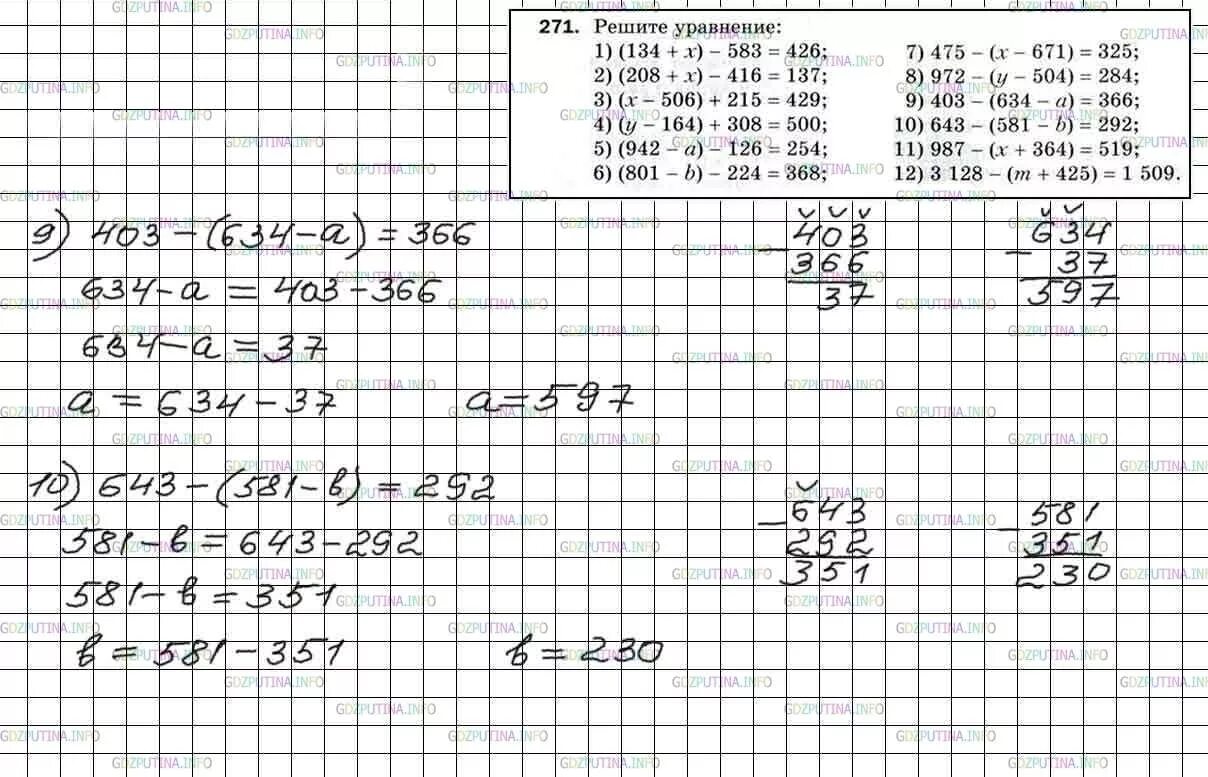 271. Решите уравнение:
1) (134 + x) − 583 = 426;
2) (208 + x) − 416 = 137;
3) (x − 506) + 215 = 429;
4) (y − 164) + 308 = 500;
5) (942 − a) − 126 = 254;
6) (801 − b) − 224 = 368;
7) 475 − (x − 671) = 325;
8) 972 − (y − 504) = 284;
9) 403 − (634 − a) = 366;
10) 643 − (581 − b) = 292;
11) 987 − (x + 364) = 519;
12) 3 128 − (m + 425) = 1 509.
9) 403 − (634 − a) = 366
634 − a = 403 − 366
634 − a = 37
a = 634 − 37 a = 597
403
− 366
37
634
− 37
597
10) 643 − (581 − в) = 292
581 − в = 643 − 292
581 − в = 351
в = 581 − 351 в = 230
643
− 292
351
581
− 351
230
GDZPUTINA.INFO